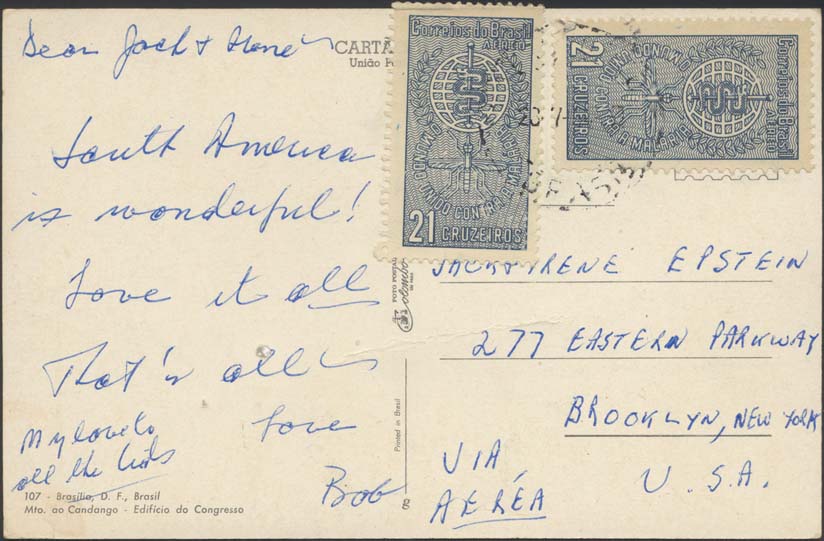 Dear Jack & Irene
South America
is wonderful!
Love it all
That's all
Love
Bob
My love to
all the kids
107 - Brasília, D. F., Brasil
Mto. ao Candango - Edifício do Congresso
CARTÃ
União Po
Correios do Brasil
AÉREO
MUNDO UNIDO CONTRA A MALÁRIA
21 CRUZEIROS
Correios do Brasil
AÉREO
MUNDO UNIDO CONTRA A MALÁRIA
21 CRUZEIROS
FOTO POSTAL
Colombo
Printed in Brasil
g
JACK & IRENE EPSTEIN
277 EASTERN PARKWAY
BROOKLYN, NEW YORK
U.S.A.
VIA
AERÉA